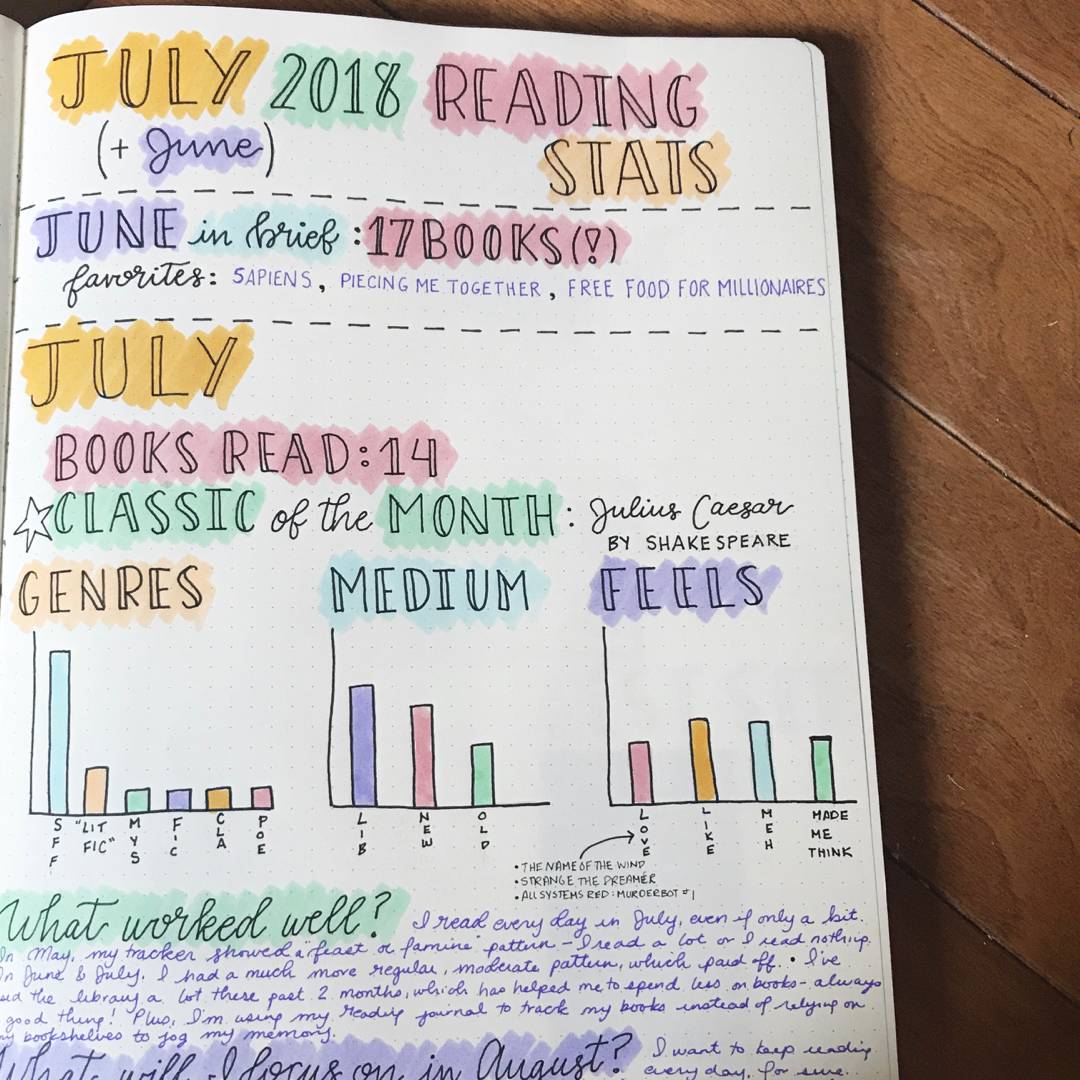 JULY 2018 READING
(+ June) STATS
JUNE in brief : 17 BOOKS (!)
favorites: SAPIENS, PIECING ME TOGETHER, FREE FOOD FOR MILLIONAIRES
JULY
BOOKS READ: 14
CLASSIC of the MONTH: Julius Caesar
BY SHAKESPEARE
GENRES MEDIUM FEELS
SFF "LIT FIC" MYS FIC CLA POE
LIB NEW OLD
LOVE LIKE MEH MADE ME THINK
• THE NAME OF THE WIND
• STRANGE THE DREAMER
• ALL SYSTEMS RED: MURDERBOT #1
What worked well? I read every day in July, even if only a bit.
In May, my tracker showed a "feast or famine" pattern - I read a lot or I read nothing.
In June & July, I had a much more regular, moderate pattern, which paid off. • I've
the library a lot these past 2 months, which has helped me to spend less on books - always
good thing! Plus, I'm using my reading journal to track my books instead of relying on
my bookshelves to jog my memory.
What will I focus on in August? I want to keep reading
every day, for sure.